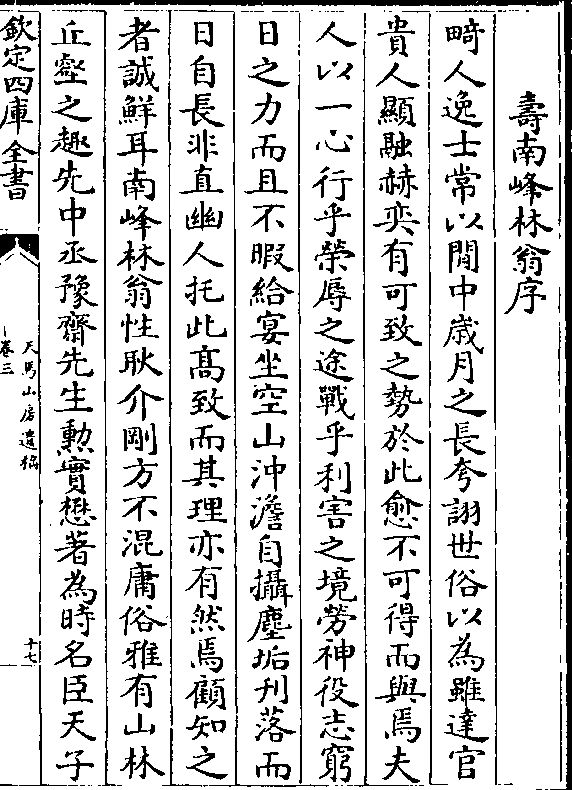 壽南峰林翁序
畸人逸士常以閒中歳月之長夸詡世俗以為雖達官
貴人顯融赫奕有可致之勢於此愈不可得而與焉夫
人以一心行乎榮辱之途戰乎利害之境勞神役志窮
日之力而且不暇給宴坐空山沖澹自攝塵垢刋落而
日自長非直幽人托此髙致而其理亦有然焉顧知之
者誠鮮耳南峰林翁性耿介剛方不混庸俗雅有山林
丘壑之趣先中丞豫齋先生勲實懋著為時名臣天子
欽定四庫全書
天馬山房遺稿
卷三
十七